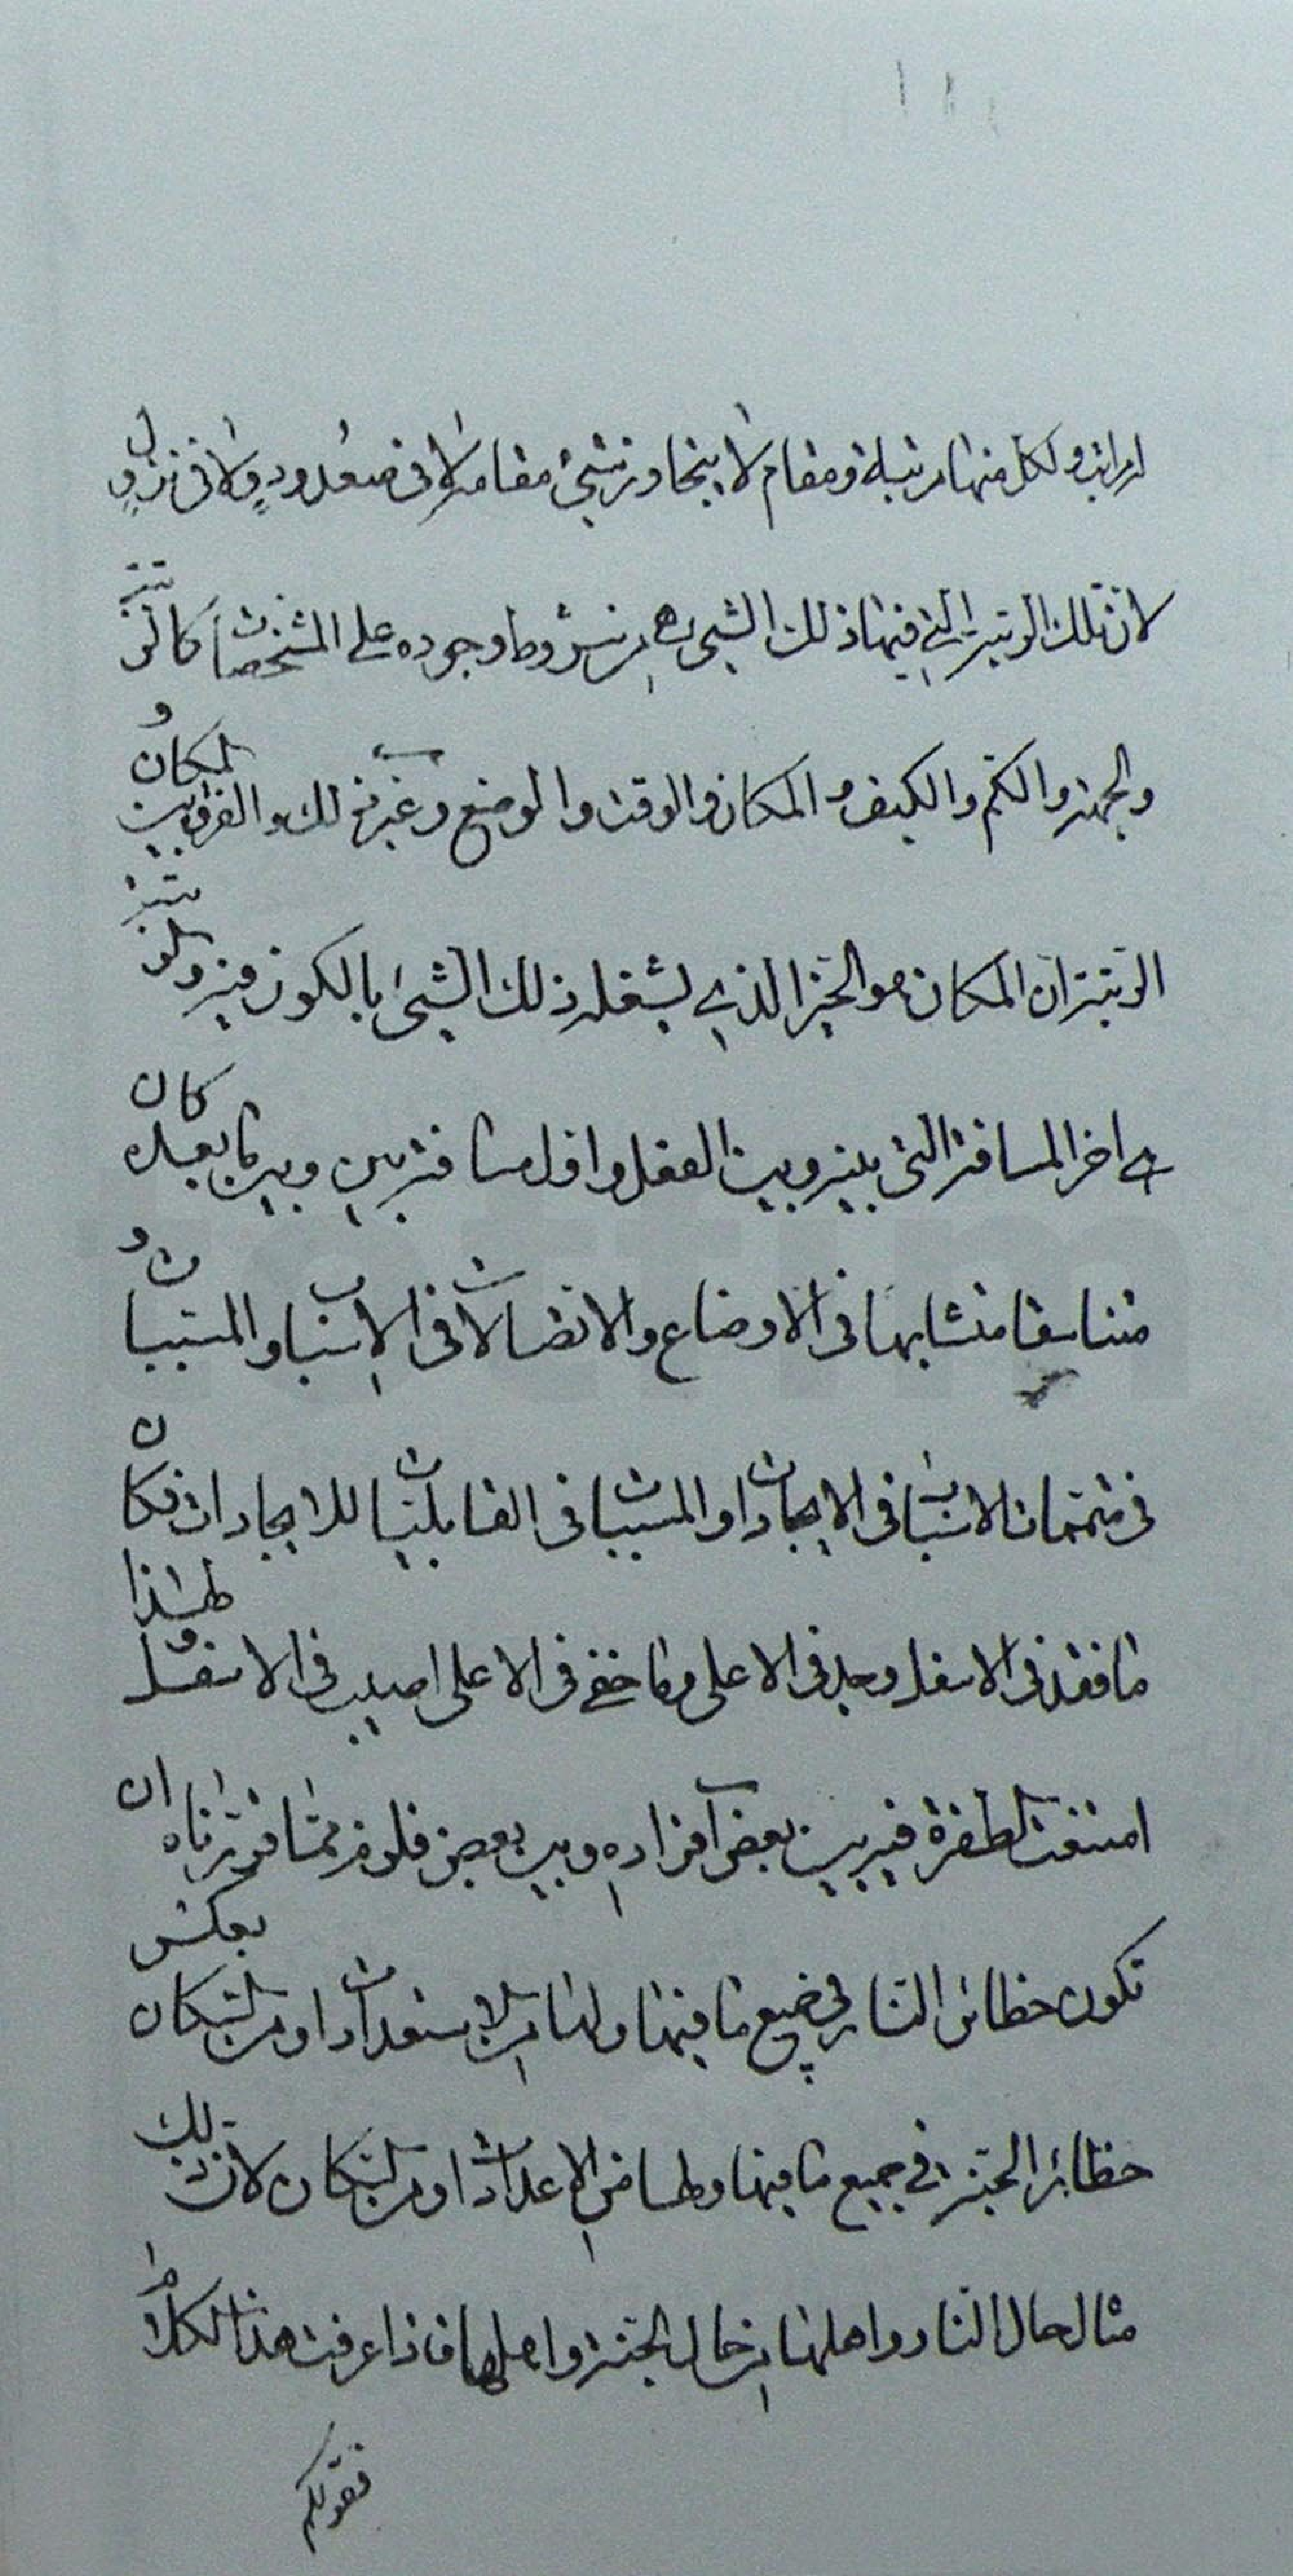 المراتب ولكل منها رتبة ومقام لا يتجاوز شيء مقامه لا في صعوده ولا في نزوله
لان تلك الرتبة التي فيها ذلك الشيء هي من شروط وجوده على المشخصات كالرتبة
والجهة والكم والكيف والمكان والوقت والوضع وغير ذلك والفرق بين المكان و
الرتبة ان المكان هو الحيز الذي يشغله ذلك الشيء بالكون فيه والرتبة
هي اخر المسافة التي بينه وبين الفعل واول مسافة بينه وبين ما بعده كان
متناسقا متشابها في الاوضاع والاتصالات في الاسباب والمسببات و
في متممات الاسباب في الايجادات والمسببات في القابليات للايجادات فكان
ما فقد في الاسفل وجد في الاعلى وما خفي في الاعلى اصيب في الاسفل ولهذا
امتنعت الطفرة فيه بين بعض افراده وبين بعض فلزم مما قررناه ان
تكون حظائر النار في جميع ما فيها ولها من الاستعدادات ومن السكان بعكس
حظائر الجنة في جميع ما فيها ولها من الاعدادات ومن السكان لان ذلك
مثال حال النار واهلها من حال الجنة واهلها فاذا عرفت هذا الكلام
فقولكم